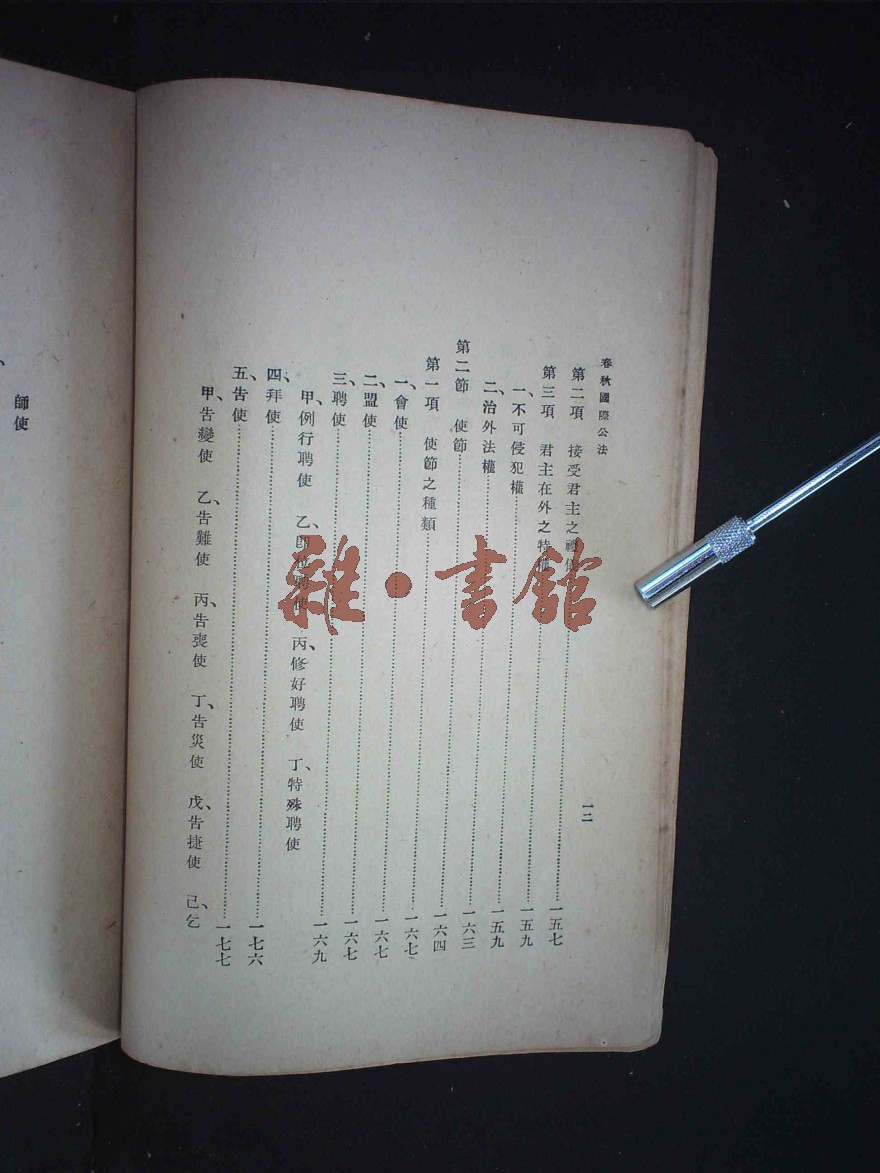 春秋國際公法 一二
第二項 接受君主之禮儀……一五七
第三項 君主在外之特權……一五九
一、不可侵犯權……一五九
二、治外法權……一六三
第二節 使節……一六四
第一項 使節之種類……一六七
一、會使……一六七
二、盟使……一六七
三、聘使……一六九
甲、例行聘使 乙、即位聘使 丙、修好聘使 丁、特殊聘使
四、拜使……一七六
五、告使……一七七
甲、告變使 乙、告難使 丙、告喪使 丁、告災使 戊、告捷使 己、乞
師使
雜·書館